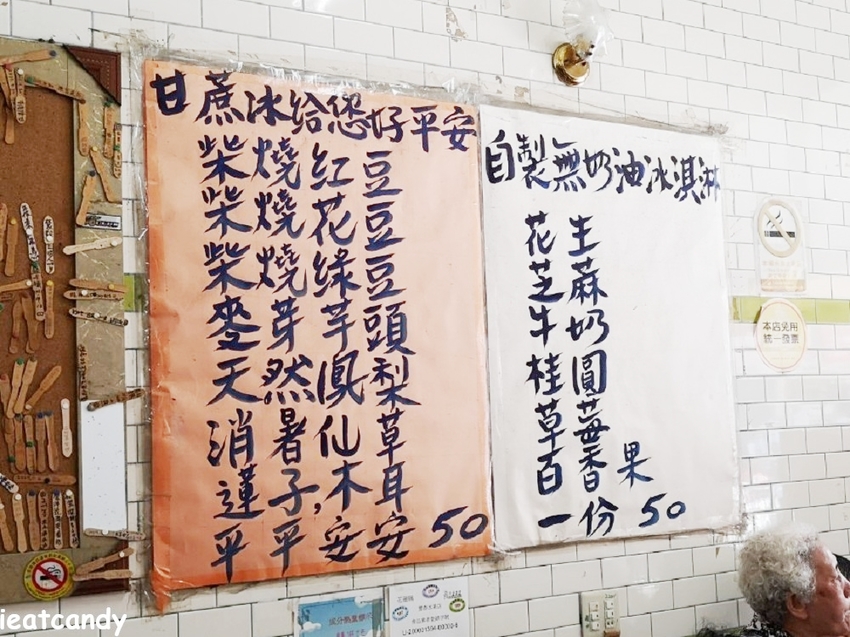 甘蔗冰給您好平安
柴燒紅豆
柴燒花豆
柴燒綠豆
麥芽芋頭
天然鳳梨
消暑仙草
蓮子,木耳
平平安安 50
自製無奶油冰淇淋
花生
芝蔴
牛奶
桂圓
草莓
百香果
一份 50
本店免用
統一發票
ieatcandy